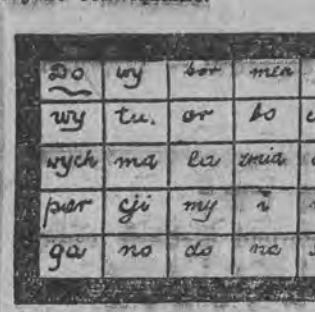 Do wy bor men
wy tu. or bo
wych ma la zmia
per cji my i
ga no do na